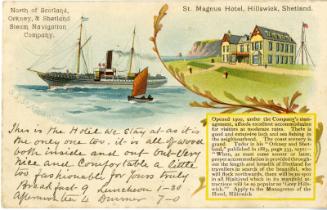 North of Scotland,
Orkney, & Shetland
Steam Navigation
Company.
St. Magnus Hotel, Hillswick, Shetland.
This is the Hotel we stay at as it is
the only one too, it is all of wood
both inside and out but very
nice and comfortable a little
too fashionable for yours truly
Breakfast 9 Luncheon 1-30
Afternoon 4 Dinner 7-0
Opened 1902, under the Company's man-
agement, affords excellent accommodation
for visitors at moderate rates. There is
good and extensive loch and sea fishing in
the neighbourhood. The coast scenery is
grand. Tudor in his "Orkney and Shet-
land," published in 1883, page 531, says:—
"When, as must come sooner or later,
proper accommodation is provided through-
out the length and breadth of Shetland for
travellers in search of the beautiful, who
will flock northwards, there will be no spot
in all Hjaltland which in its manifold at-
tractions will be so popular as 'Grey Hills-
wick.'" Apply to the Management of the
Hotel, Hillswick.